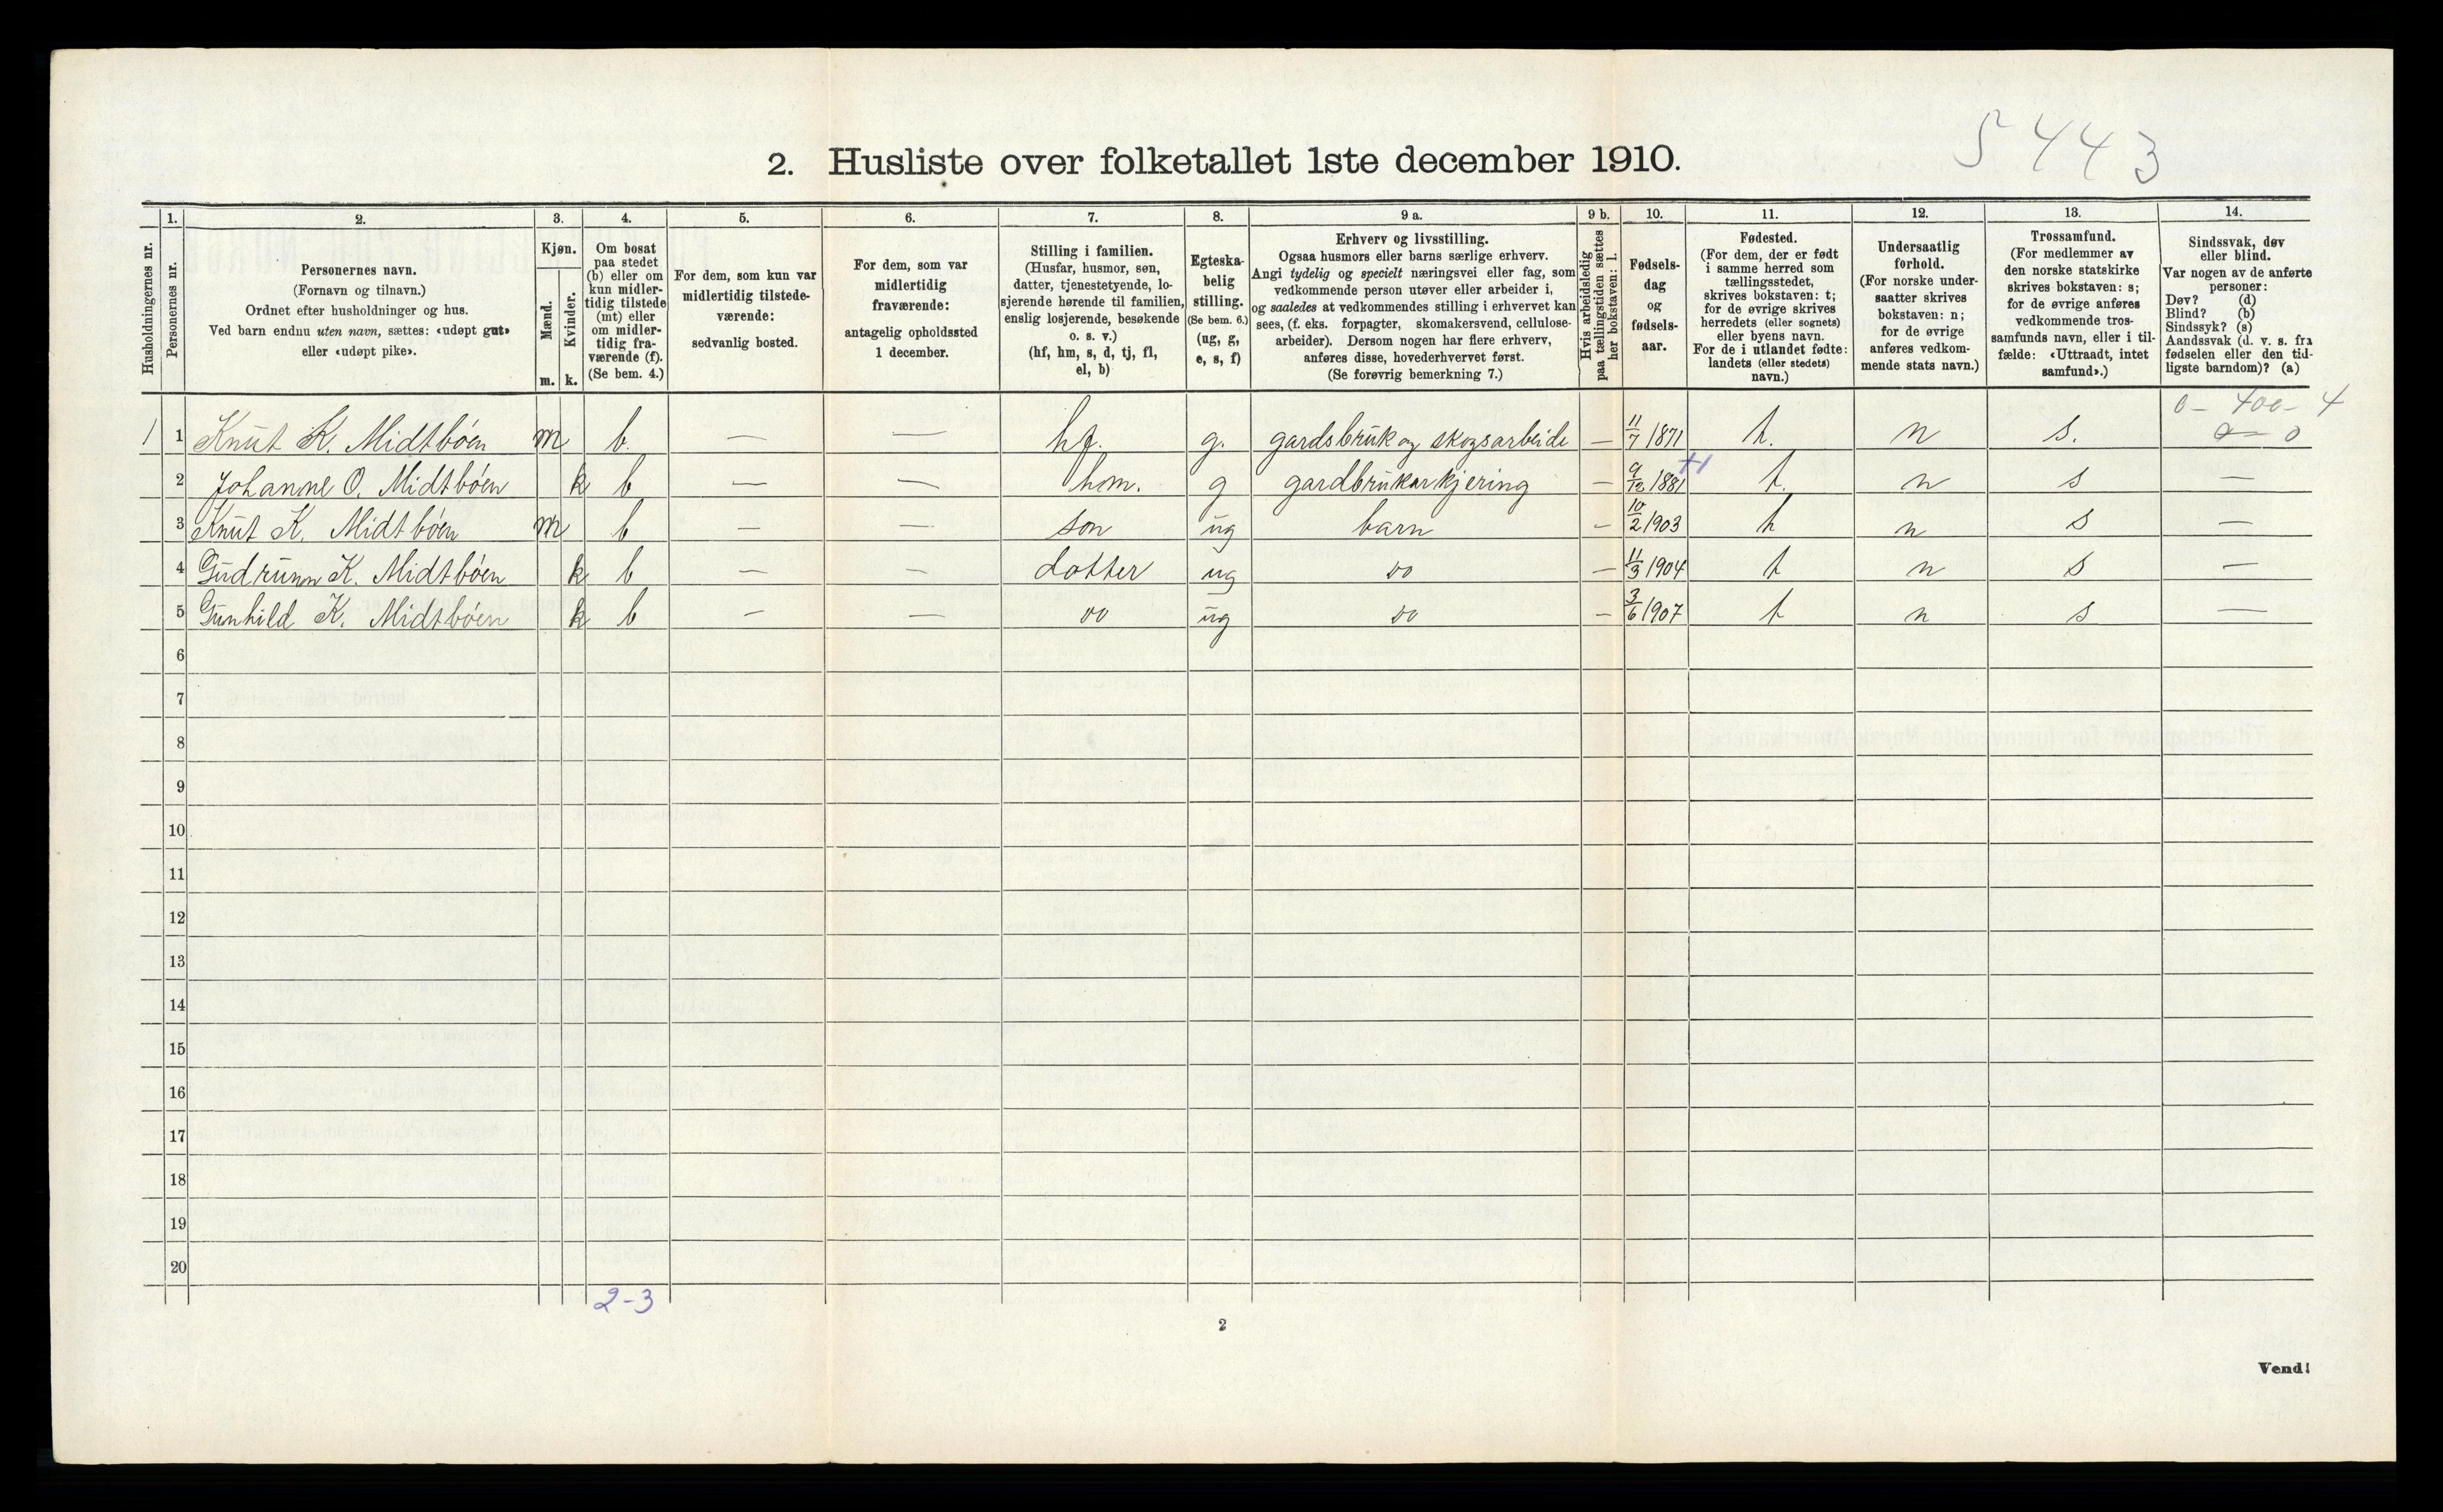 5443
2. Husliste over folketallet 1ste december 1910.
Husholdningernes nr.
1. Personernes nr.
2. Personernes navn. (Fornavn og tilnavn.) Ordnet efter husholdninger og hus. Ved barn endnu uten navn, sættes: «udøpt gut» eller «udøpt pike».
3. Kjøn. Mænd. m. Kvinder. k.
4. Om bosat paa stedet (b) eller om kun midlertidig tilstede (mt) eller om midlertidig fraværende (f). (Se bem. 4.)
5. For dem, som kun var midlertidig tilstedeværende: sedvanlig bosted.
6. For dem, som var midlertidig fraværende: antagelig opholdssted 1 december.
7. Stilling i familien. (Husfar, husmor, søn, datter, tjenestetyende, losjerende hørende til familien, enslig losjerende, besøkende o. s. v.) (hf, hm, s, d, tj, fl, el, b)
8. Egteskabelig stilling. (Se bem. 6.) (ug, g, e, s, f)
9 a. Erhverv og livsstilling. Ogsaa husmors eller barns særlige erhverv. Angi tydelig og specielt næringsvei eller fag, som vedkommende person utøver eller arbeider i, og saaledes at vedkommendes stilling i erhvervet kan sees, (f. eks. forpagter, skomakersvend, cellulosearbeider). Dersom nogen har flere erhverv, anføres disse, hovederhvervet først. (Se forøvrig bemerkning 7.)
9 b. Hvis arbeidsledig paa tællingstiden sættes her bokstaven: l.
10. Fødselsdag og fødselsaar.
11. Fødested. (For dem, der er født i samme herred som tællingsstedet, skrives bokstaven: t; for de øvrige skrives herredets (eller sognets) eller byens navn. For de i utlandet fødte: landets (eller stedets) navn.)
12. Undersaatlig forhold. (For norske undersaatter skrives bokstaven: n; for de øvrige anføres vedkommende stats navn.)
13. Trossamfund. (For medlemmer av den norske statskirke skrives bokstaven: s; for de øvrige anføres vedkommende trossamfunds navn, eller i tilfælde: «Uttraadt, intet samfund».)
14. Sindssvak, døv eller blind. Var nogen av de anførte personer: Døv? (d) Blind? (b) Sindssyk? (s) Aandssvak (d. v. s. fra fødselen eller den tidligste barndom)? (a)
0 - 400 - 4
1 1 Knut K. Midtbøen m b. — — hf. g. gardsbruk og skogsarbeide — 11/7 1871 t. n s. 0
2 Johanne O. Midtbøen k b — — hm. g gardbrukarkjering — 9/12 1881 t. n s —
3 Knut K. Midtbøen m b — — son ug barn — 10/2 1903 t n s —
4 Gudrunn K. Midtbøen k b — — dotter ug do — 11/3 1904 t n s —
5 Gunhild K. Midtbøen k b — — do ug do — 3/6 1907 t n s —
6
7
8
9
10
11
12
13
14
15
16
17
18
19
20
2-3
2
Vend!